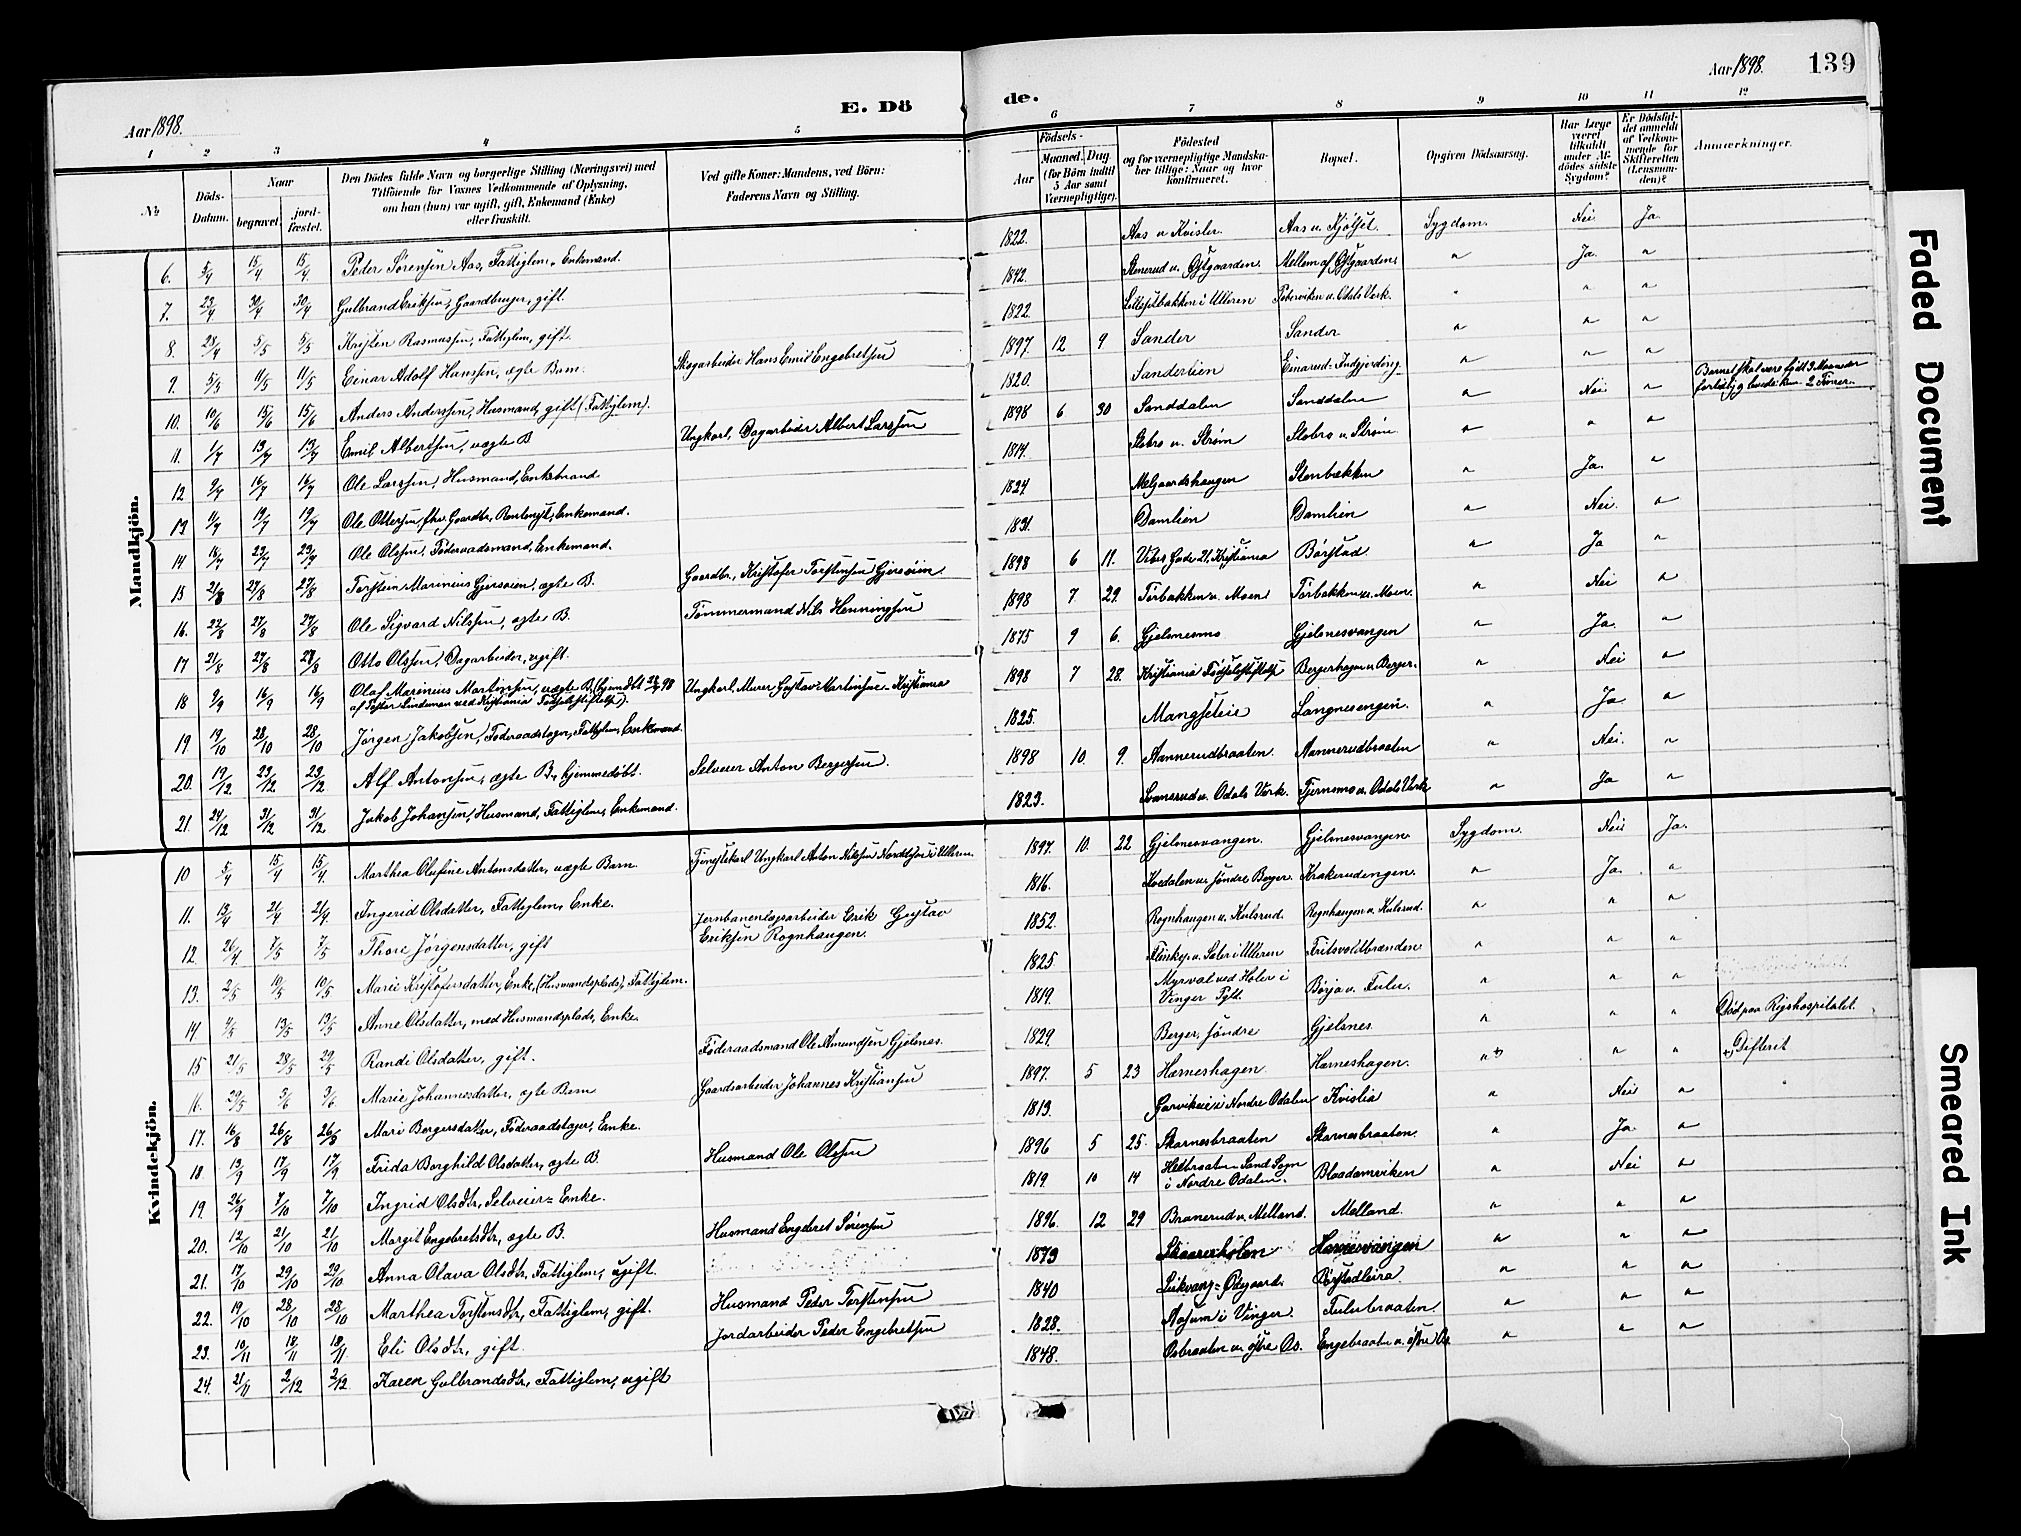 Aar 1898.
E. Dö
de.
Aar 1898. 139
1 2 3 4 5 6 7 8 9 10 11 12
No
Döds-Datum.
Naar
begravet
jordfæstet.
Den Dödes fulde Navn og borgerlige Stilling (Næringsvei) med
Tilföiende for Voxnes Vedkommende af Oplysning,
om han (hun) var ugift, gift, Enkemand (Enke)
eller fraskilt.
Ved gifte Koner: Mandens, ved Börn:
Faderens Navn og Stilling.
Födsels-
Aar
Maaned. Dag
(for Börn indtil
5 Aar samt
Værnepligtige).
Födested
og for værnepligtige Mandska-
ber tillige: Naar og hvor
konfirmeret.
Bopæl.
Opgiven Dödsaarsag.
Har Læge
været
tilkaldt
under Af-
dödes sidste
Sygdom?
Er Dödsfal-
det anmeldt
af Vedkom-
mende for
Skifteretten
(Lensman-
den)?
Anmærkninger.
Mandkjön.
6. 5/4 15/4 15/4 Peder Sørensen Aas, Fattiglem, Enkemand. 1822. Aas u. Kvisler. Aas u. Kjølset. Sygdom. Nei. Ja.
7. 23/4 30/4 30/4 Gulbrand Eriksen, Gaardbruger, gift. 1842. Stenerud u. Østgaarden. Mellem af Østgaarden. " Ja. "
8. 28/4 5/5 5/5 Kristen Rasmussen, Fattiglem, gift. 1822. i Ulleren u. Odals Verk. " " "
9. 5/5 11/5 11/5 Einar Adolf Hansen, ægte Barn. Skogarbeider Hans Emil Engebretsen 1897 12 9 Sander Sander " " "
10. 10/6 15/6 15/6 Anders Anderssen, Husmand, gift (Fattiglem). 1820. Sanderlien Einarud " " "
11. 1/7 13/7 13/7 Emil Albertsen, uægte B Ungkarl, Dagarbeider Albert Larssen 1898 6 30 Sanddalen Sanddalen " Nei " Barnet skal være født 3 Maaneder
for tidlig 2 Timer.
12 9/7 16/7 16/7 Ole Larssen, Husmand, Enkemand 1814. Slobro u. Strøm Slobro u. Strøm " " "
13 11/7 19/7 19/7 Ole Ottersen, fhv. Gaardbr., Enkemand. 1824 Melgaardshaugen Stenbækken " Ja. "
14 18/7 23/7 23/7 Ole Olssen, Føderaadsmand, Enkemand. 1831. Damlien Damlien " Nei. "
15 21/8 27/8 27/8 Torstein Marinius Gjersøien, ægte B. Gaardbr. Kristofer Torstensen Gjersøien. 1898 6 11. Vibes Gade 21, Kristiania Børstad " Ja "
16. 22/8 27/8 27/8 Ole Sigvard Nilssen, ægte B. Tømmermand Nils Henningsen 1898 7 29. Tørbakken u. Moen Tørbakken u. Moen. " Nei "
17 21/8 27/8 27/8 Otto Olssen, Dagarbeider, ugift. 1875 9 6. Gjelnesmo Gjelnesvangen " Ja. "
18 9/9 16/9 16/9 Olaf Marinius Martinsen, uægte B.
af Pastor Lindeman ved Kristiania Fødselsstiftelse). Ungkarl, Murer Gustav Martinsen - Kristiania 1898 7 28. Kristiania Fødselsstiftelse Bergerhagen u. Berger. " Nei "
19 19/10 28/10 28/10 Jørgen Jakobsen, Føderaadstager, Fattiglem, Enkemand. 1825. Mangseteie Langnesengen. " Ja "
20. 19/12 23/12 23/12 Alf Antonsen, ægte B., hjemmedøbt. Selveier Anton Bergersen. 1898 10. 9. Aannerudbraaten. Aannerudbraaten " Nei. "
21. 24/12 31/12 31/12 Jakob Johansen, Husmand, Fattiglem, Enkemand. 1823. Svansrud u. Odals Verk. Tjernsmo u. Odals Verk " Ja "
Kvindekjön.
10 5/4 15/4 15/4. Marthea Olufine Antonsdatter, uægte Barn. Tjenestekarl Ungkarl Anton Nilssen i Ulleren. 1897. 10. 22 Gjelnesvangen. Gjelnesvangen. Sygdom. Nei Ja.
11. 13/4 21/4 21/4 Ingerid Olsdatter, Fattiglem, Enke. 1816. u. søndre Berger. Krakerudengen. " Ja. "
12. 26/4. 7/5 7/5 Thore Jørgensdatter, gift Jernbanearbeider Erik Gustav
Eriksen Rognhaugen. 1852. Rognhaugen u. Kulsrud. Rognhaugen u. Kulsrud. " " "
13. 2/5 10/5 10/5 Marie Kristofersdatter, Enke, (Husmandsplads), Fattiglem. 1825 u. Seter i Ulleren Fritsvoldbrænden " " "
14 4/5 13/5 13/5 Anne Olsdatter, med Husmandsplads, Enke. 1819. Myrval ved Holer i
Vinger Pgld. Børja u. Fuler. " " "
15 21/5 28/5 29/5 Randi Olsdatter, gift. Føderaadsmand Ole Amundsen Gjelnes. 1829. Berger, søndre Gjelsnes " " " Død paa Rigshospitalet.
16. 29/5 3/6 3/6 Marie Johannesdatter, ægte Barn Gaardsarbeider Johannes Kristiansen 1897. 5 23 Hærneshagen. Hærneshagen. " " " Difterit
17. 16/8 26/8 26/8 Mari Bergersdatter, Føderaadstager, Enke. 1813. Garvikeie i Nordre Odalen Kvislia " Nei "
18 13/9 17/9 17/9 Frida Borghild Olsdatter, ægte B. Husmand Ole Olssen 1896 5 25. Skarnesbraaten Skarnesbraaten. " Ja. "
19. 26/9 7/10 7/10 Ingrid Olsdtr, Selveier-Enke. 1819. 10 14 Helbraaten Sand Sogn
i Nordre Odalen. Blaadamviken " Nei "
20. 12/10 21/10 21/10 Margit Engebretsdtr, ægte B. Husmand Engebret Sørensen 1896. 12 29 Branerud u. Melland. Melland. " " "
21. 17/10 29/10 29/10 Anna Olava Olsdtr, Fattiglem, ugift. 1879 Skaarerholen Harnesvangen " " "
22. 19/10 28/10 28/10 Marthea Torstensdtr, Fattiglem, gift. Husmand Peder Torstensen 1840 Likvang-Ødegaard Børstadleira. " " "
23. 10/11 18/11 18/11 Eli Olsdtr, gift. Jordarbeider Peder Engebretsen 1828. Aasum i Vinger. Fulerbraaten. " " "
24. 21/11 2/12 2/12. Karen Gulbrandsdtr, Fattiglem, ugift 1848. Osbraaten u. østre Os. Engebraaten u. østre Os. " " "
Faded Document
Smeared Ink